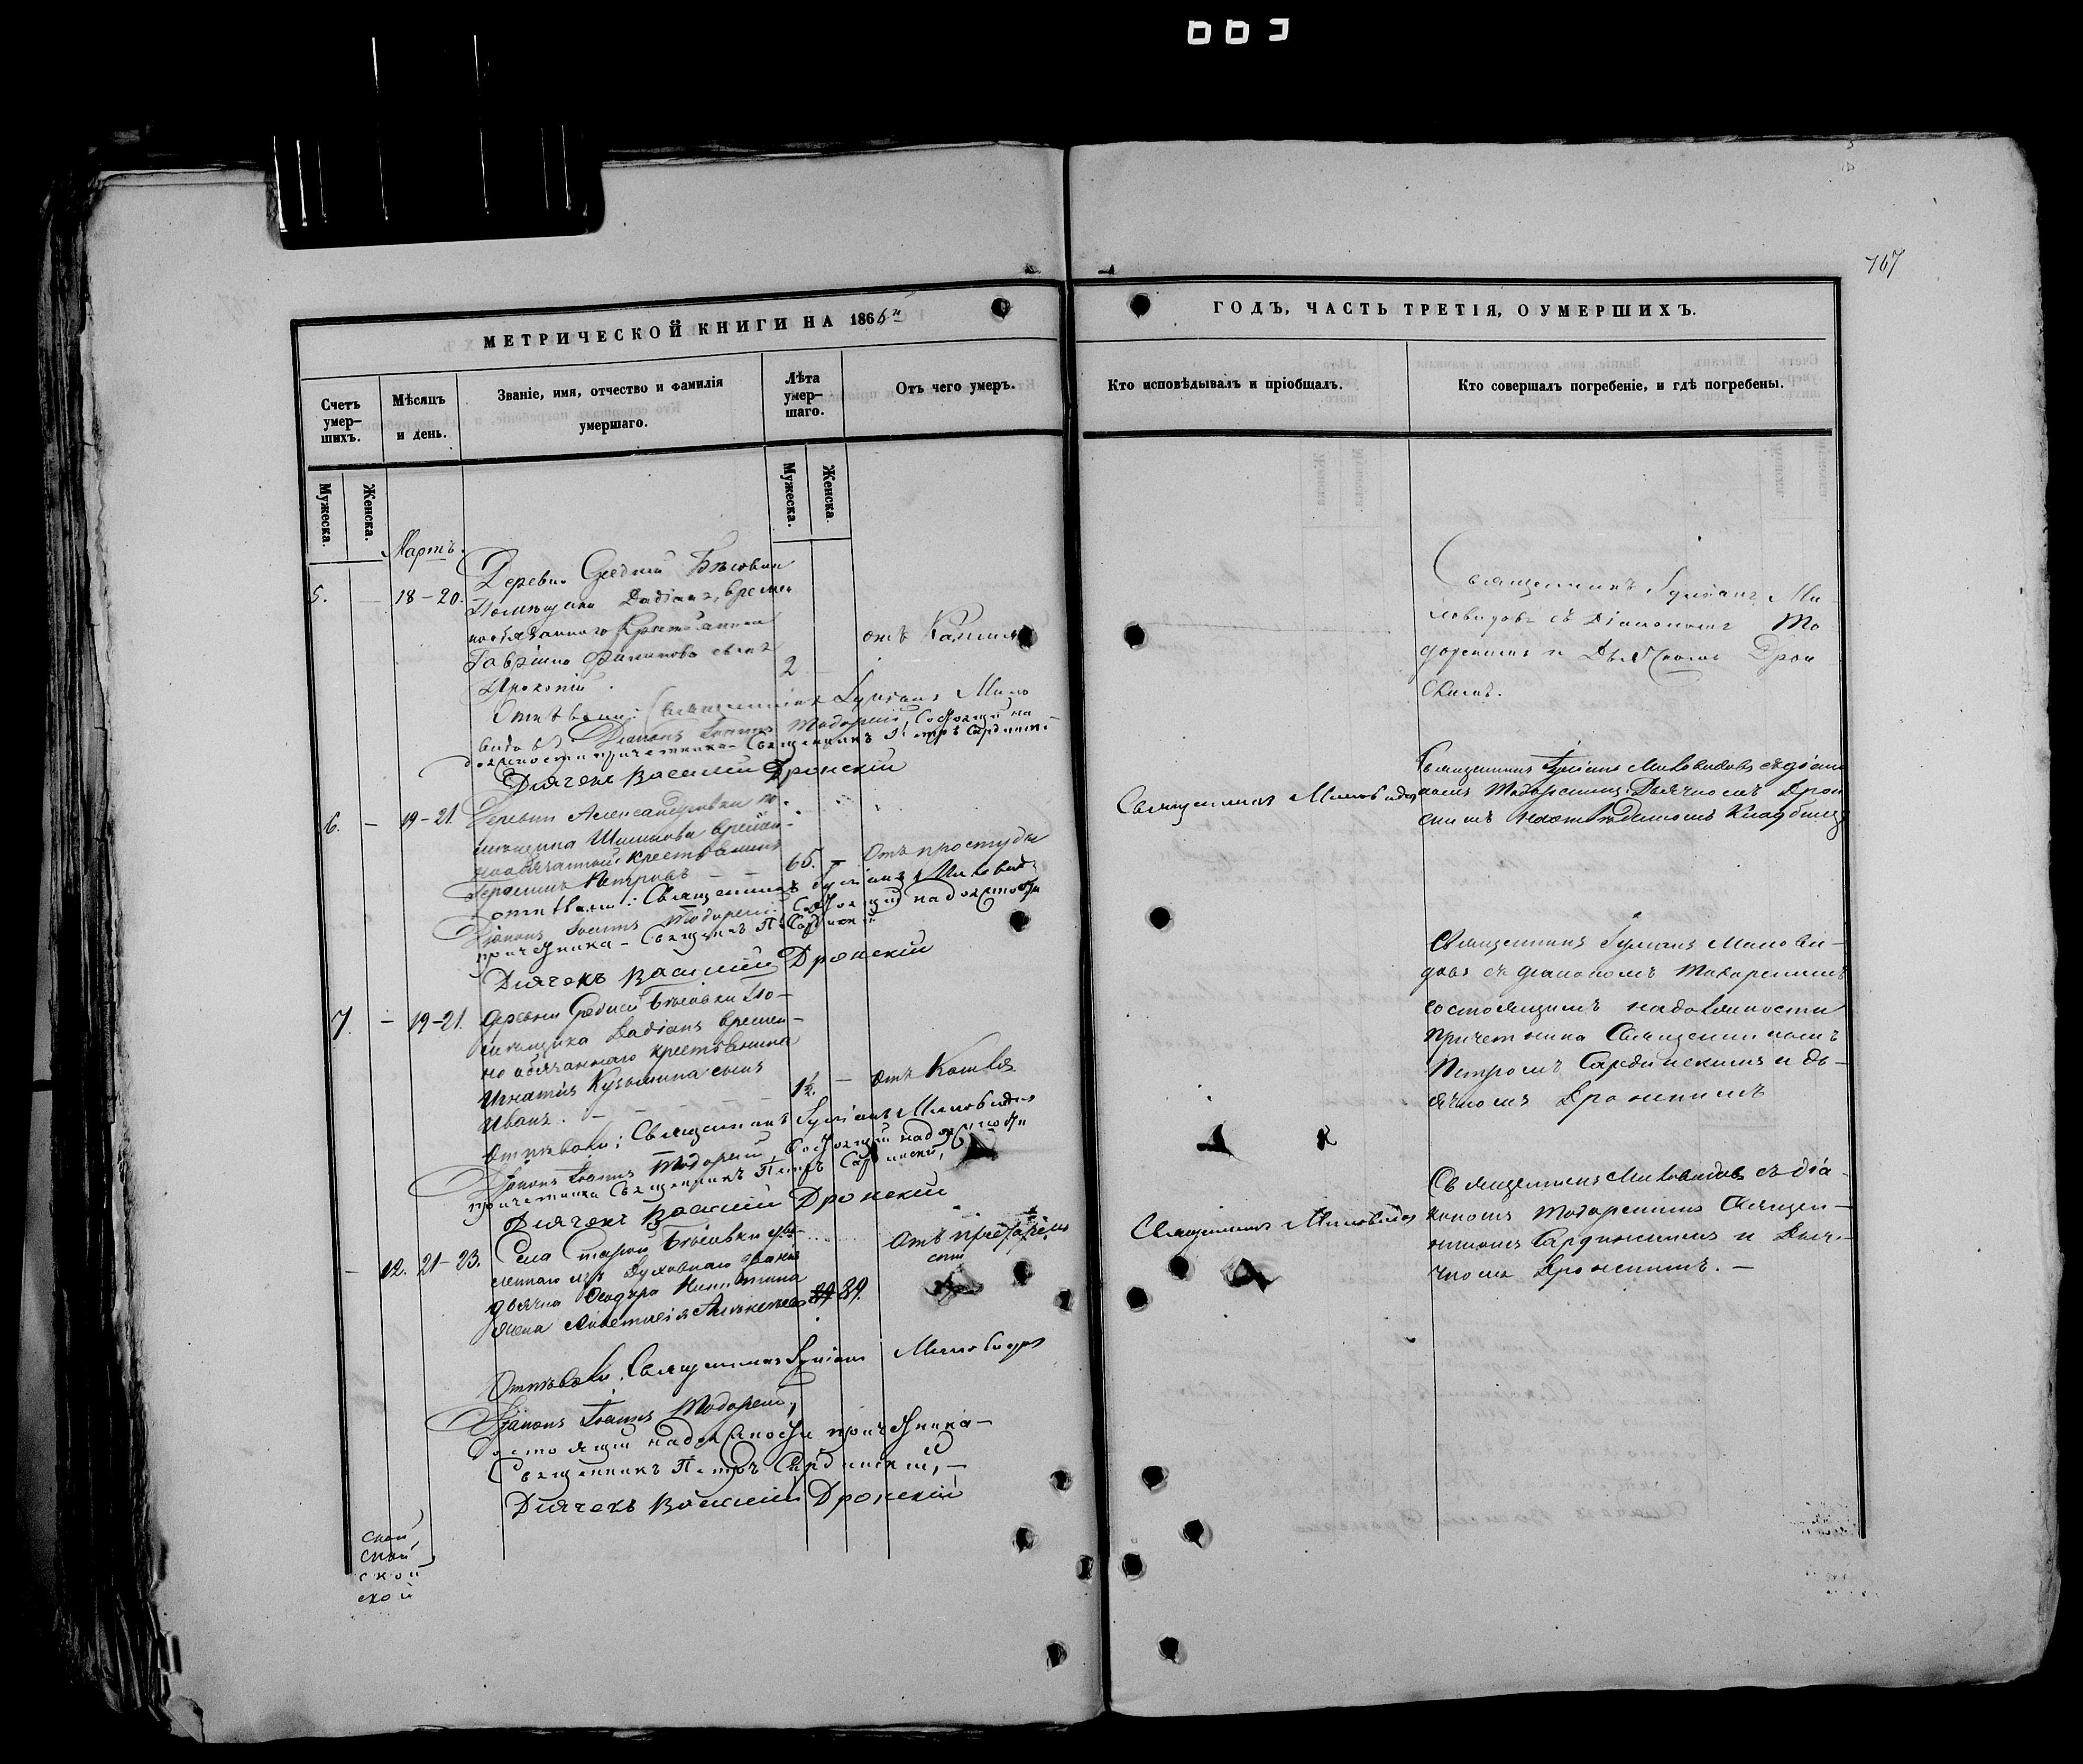 167
МЕТРИЧЕСКОЙ КНИГИ НА 186
ГОДЪ, ЧАСТЬ ТРЕТІЯ, О УМЕРШИХЪ.
Счетъ умер-шихъ.
Мѣсяцъ и день.
Званіе, имя, отчество и фамилія умершаго.
Лѣта умер-шаго.
Отъ чего умеръ.
Кто исповѣдывалъ и пріобщалъ.
Кто совершалъ погребеніе, и гдѣ погребены.
Мужеска.
Женска.
Мужеска.
Женска.
Мартъ.
5. — 18-20.
Деревни Средней
Помѣщика Dadіанъ, времен
нообязаннаго Крестьянина
Гавріила Филипова сынъ
Прокопій.
2
отъ Кашля
Отпѣвали: Священникъ Іуліанъ Мило
видовъ Діаконъ Іоаннъ Тодорскій, Состоящій на
должности причетника Священникъ Петръ Сардинскій
Дьячекъ Василій Дронскій
Священникъ Іуліанъ Ми-
ловидовъ съ Діакономъ То
дорскимъ и Дьячкомъ Дрон
скимъ.
6. — 19-21.
Деревни Александровки по-
мѣщика Шишкова времен-
нообязанный крестьянинъ
Герасимъ Петровъ — —
65. —
Отъ простуды
Отпѣвали: Священникъ Іуліанъ Миловид.
Діаконъ Іоаннъ Тодорскій Состоящій на должности
причетника — Священникъ П. Сардинскій
Дьячекъ Василій Дронскій
Священникъ Миловидовъ
Священникъ Іуліанъ Миловидовъ съ діако
номъ Тодорскимъ Дьячкомъ Дрон
скимъ на отведенномъ Кладбищѣ
7. — 19-21.
Деревни Средней По-
мѣщика Dadіанъ времен-
но обязаннаго крестьянина
Игнатія Кузьмина сынъ
Иванъ. — —
1½. —
Отъ Кашля
Отпѣвали: Священникъ Іуліанъ Миловидовъ
Діаконъ Іоаннъ Тодорскій, Состоящій на должности
причетника Священникъ Петръ Сардинскій,
Дьячекъ Василій Дронскій
Священникъ Іуліанъ Милови-
довъ съ діакономъ Тодорскимъ
состоящимъ на должности
причетника Священникомъ
Петромъ Сардинскимъ и дь-
ячкомъ Дронскимъ
— 12. 21-23.
Села Старой
леннаго изъ Духовнаго званія
дьячка Ѳедора Никитина
жена
89.
Отъ престарѣло
сти
Отпѣвали: Священникъ Іуліанъ Миловидовъ
Діаконъ Іоаннъ Тодорскій,
Состоящій на должности причетника —
Священникъ Петръ Сардинскій, —
Дьячекъ Василій Дронскій
Священникъ Миловидовъ
Священникъ Миловидовъ съ діа-
кономъ Тодорскимъ Священ-
никомъ Сардинскимъ и Дья-
чкомъ Дронскимъ. —
ской
ской
ской
ской